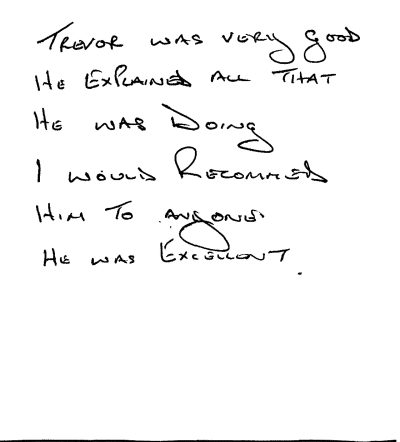 TREVOR WAS VERY GOOD
HE EXPLAINED ALL THAT
HE WAS DOING
I WOULD RECOMMED
HIM TO ANYONE.
HE WAS EXCELLONT.